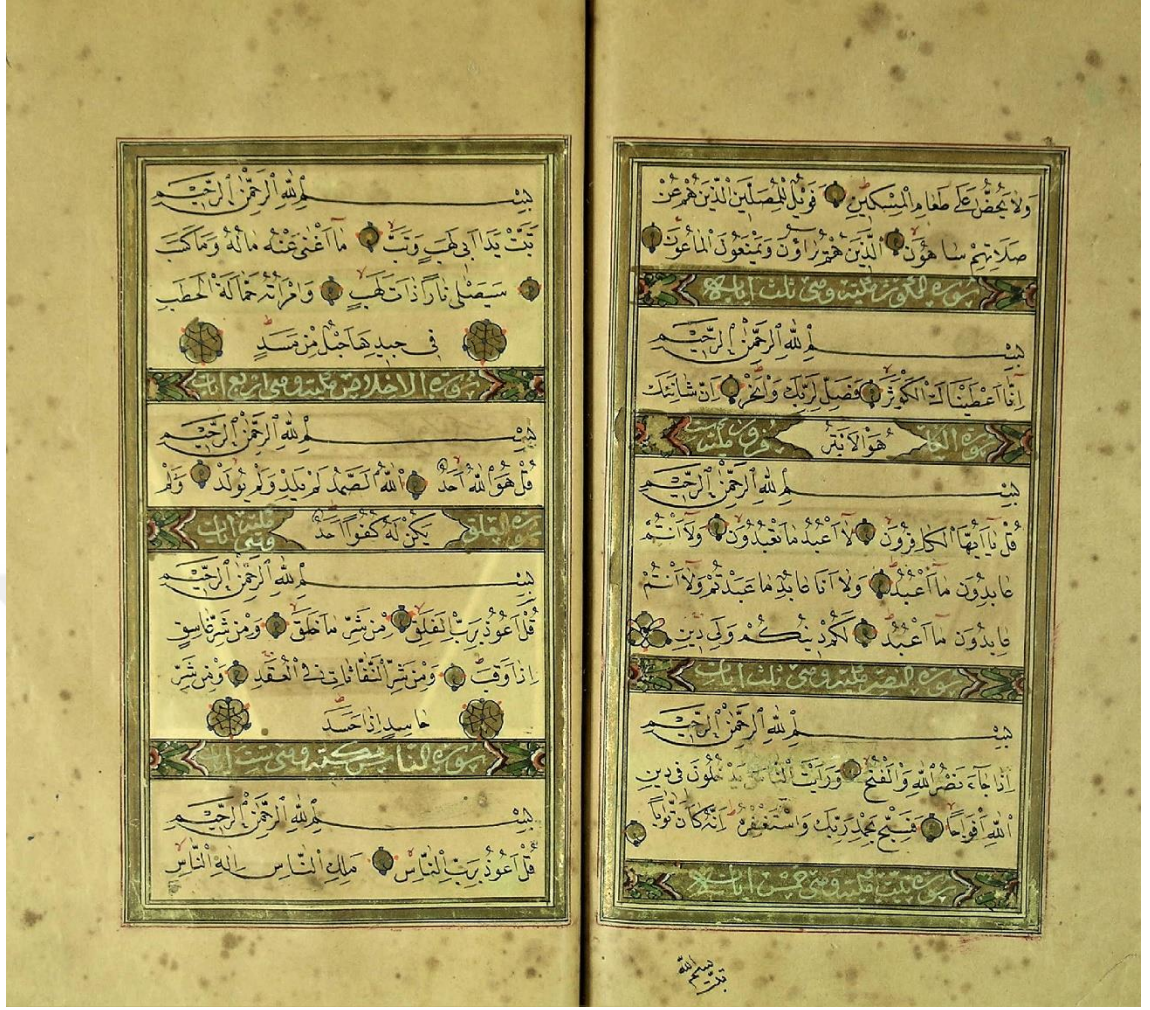 وَلَا يَحُضُّ عَلَى طَعَامِ الْمِسْكِينِ فَوَيْلٌ لِلْمُصَلِّينَ الَّذِينَ هُمْ عَنْ
صَلَاتِهِمْ سَاهُونَ الَّذِينَ هُمْ يُرَاؤُنَ وَيَمْنَعُونَ الْمَاعُونَ
سورة الكوثر مكية وهي ثلث ايات
بِسْمِ اللهِ الرَّحْمٰنِ الرَّحِيمِ
إِنَّا أَعْطَيْنَاكَ الْكَوْثَرَ فَصَلِّ لِرَبِّكَ وَانْحَرْ إِنَّ شَانِئَكَ
هُوَ الْأَبْتَرُ
بِسْمِ اللهِ الرَّحْمٰنِ الرَّحِيمِ
قُلْ يَا أَيُّهَا الْكَافِرُونَ لَا أَعْبُدُ مَا تَعْبُدُونَ وَلَا أَنْتُمْ
عَابِدُونَ مَا أَعْبُدُ وَلَا أَنَا عَابِدٌ مَا عَبَدْتُمْ وَلَا أَنْتُمْ
عَابِدُونَ مَا أَعْبُدُ لَكُمْ دِينُكُمْ وَلِيَ دِينِ
سورة النصر مكية وهي ثلث ايات
بِسْمِ اللهِ الرَّحْمٰنِ الرَّحِيمِ
إِذَا جَاءَ نَصْرُ اللهِ وَالْفَتْحُ وَرَأَيْتَ النَّاسَ يَدْخُلُونَ فِي دِينِ
اللهِ أَفْوَاجًا فَسَبِّحْ بِحَمْدِ رَبِّكَ وَاسْتَغْفِرْهُ إِنَّهُ كَانَ تَوَّابًا
سورة تبت مكية وهي خمس ايات
بِسْمِ اللهِ الرَّحْمٰنِ الرَّحِيمِ
تَبَّتْ يَدَا أَبِي لَهَبٍ وَتَبَّ مَا أَغْنَى عَنْهُ مَالُهُ وَمَا كَسَبَ
سَيَصْلَى نَارًا ذَاتَ لَهَبٍ وَامْرَأَتُهُ حَمَّالَةَ الْحَطَبِ
فِي جِيدِهَا حَبْلٌ مِنْ مَسَدٍ
سورة الاخلاص مكية وهي اربع ايات
بِسْمِ اللهِ الرَّحْمٰنِ الرَّحِيمِ
قُلْ هُوَ اللهُ أَحَدٌ اللهُ الصَّمَدُ لَمْ يَلِدْ وَلَمْ يُولَدْ وَلَمْ
سورة الفلق يَكُنْ لَهُ كُفُوًا أَحَدٌ
بِسْمِ اللهِ الرَّحْمٰنِ الرَّحِيمِ
قُلْ أَعُوذُ بِرَبِّ الْفَلَقِ مِنْ شَرِّ مَا خَلَقَ وَمِنْ شَرِّ غَاسِقٍ
إِذَا وَقَبَ وَمِنْ شَرِّ النَّفَّاثَاتِ فِي الْعُقَدِ وَمِنْ شَرِّ
حَاسِدٍ إِذَا حَسَدَ
سورة الناس مكية وهي ست ايات
بِسْمِ اللهِ الرَّحْمٰنِ الرَّحِيمِ
قُلْ أَعُوذُ بِرَبِّ النَّاسِ مَلِكِ النَّاسِ إِلٰهِ النَّاسِ